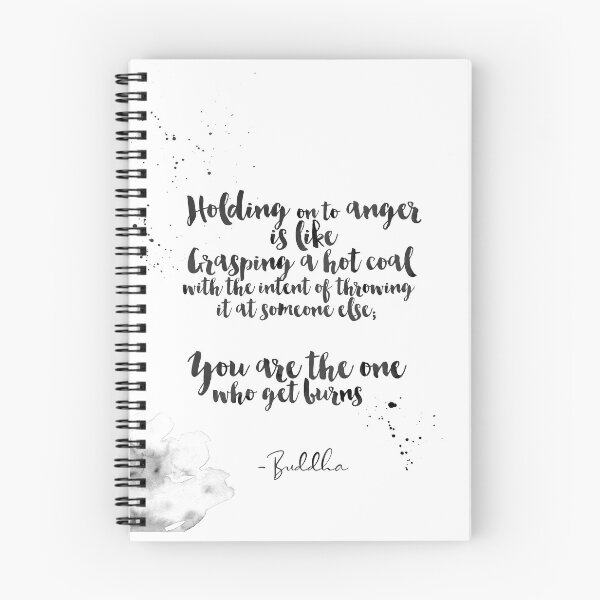 Holding on to anger
is like
Grasping a hot coal
with the intent of throwing
it at someone else;
You are the one
who get burns
-Buddha